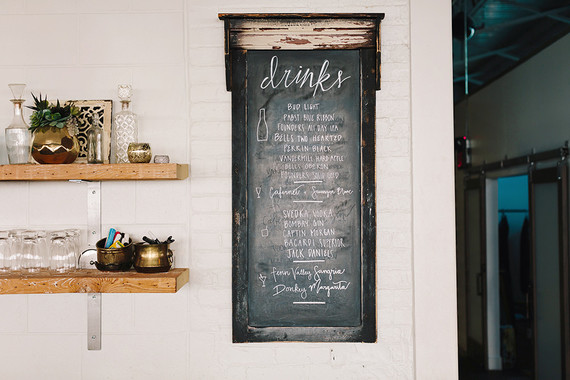 drinks
BUD LIGHT
PABST BLUE RIBBON
FOUNDERS ALL DAY IPA
BELLS TWO HEARTED
PERRIN BLACK
VANDERMILL HARD APPLE
BELLS OBERON
FOUNDERS SOLID GOLD
Cabernet & Sauvignon Blanc
SVEDKA VODKA
BOMBAY GIN
CAPTIN MORGAN
BACARDI SUPERIOR
JACK DANIELS
Fenn Valley Sangria
Donkey Margarita